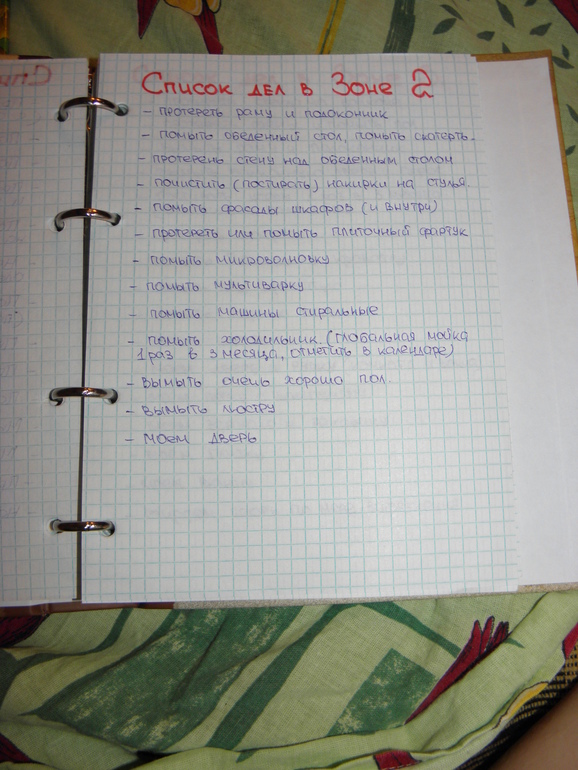 Список дел в Зоне 2
- протереть раму и подоконник
- помыть обеденный стол, помыть скатерть.
- протерень стену над обеденным столом
- почистить (постирать) накирки на стулья.
- помыть фасады шкафов (и внутри)
- протереть или помыть плиточный фартук
- помыть микроволновку
- помыть мультиварку
- помыть машины стиральные
- помыть холодильник. (глобальная мойка
1 раз в 3 месяца, отметить в календаре)
- вымыть очень хорошо пол.
- вымыть люстру
- моем дверь